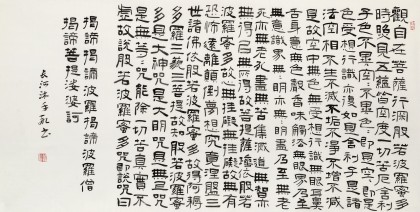 觀自在菩薩行深般若波羅蜜多
時照見五蘊皆空度一切苦厄舍利
子色不異空空不異色色即是空空即是
色受想行識亦復如是舍利子是諸
法空相不生不滅不垢不淨不增不減
是故空中無色無受想行識無眼耳鼻
舌身意無色聲香味觸法無眼界乃至無
意識界無無明亦無無明盡乃至無老
死亦無老死盡無苦集滅道無智亦
無得以無所得故菩提薩埵依般若
波羅蜜多故心無罣礙無罣礙故無有
恐怖遠離顛倒夢想究竟涅槃三
世諸佛依般若波羅蜜多故得阿耨
多羅三藐三菩提故知般若波羅蜜
多是大神咒是大明咒是無上咒
是無等等咒能除一切苦真實不
虛故說般若波羅蜜多咒即說咒曰
揭諦揭諦波羅揭諦波羅僧
揭諦菩提娑婆訶